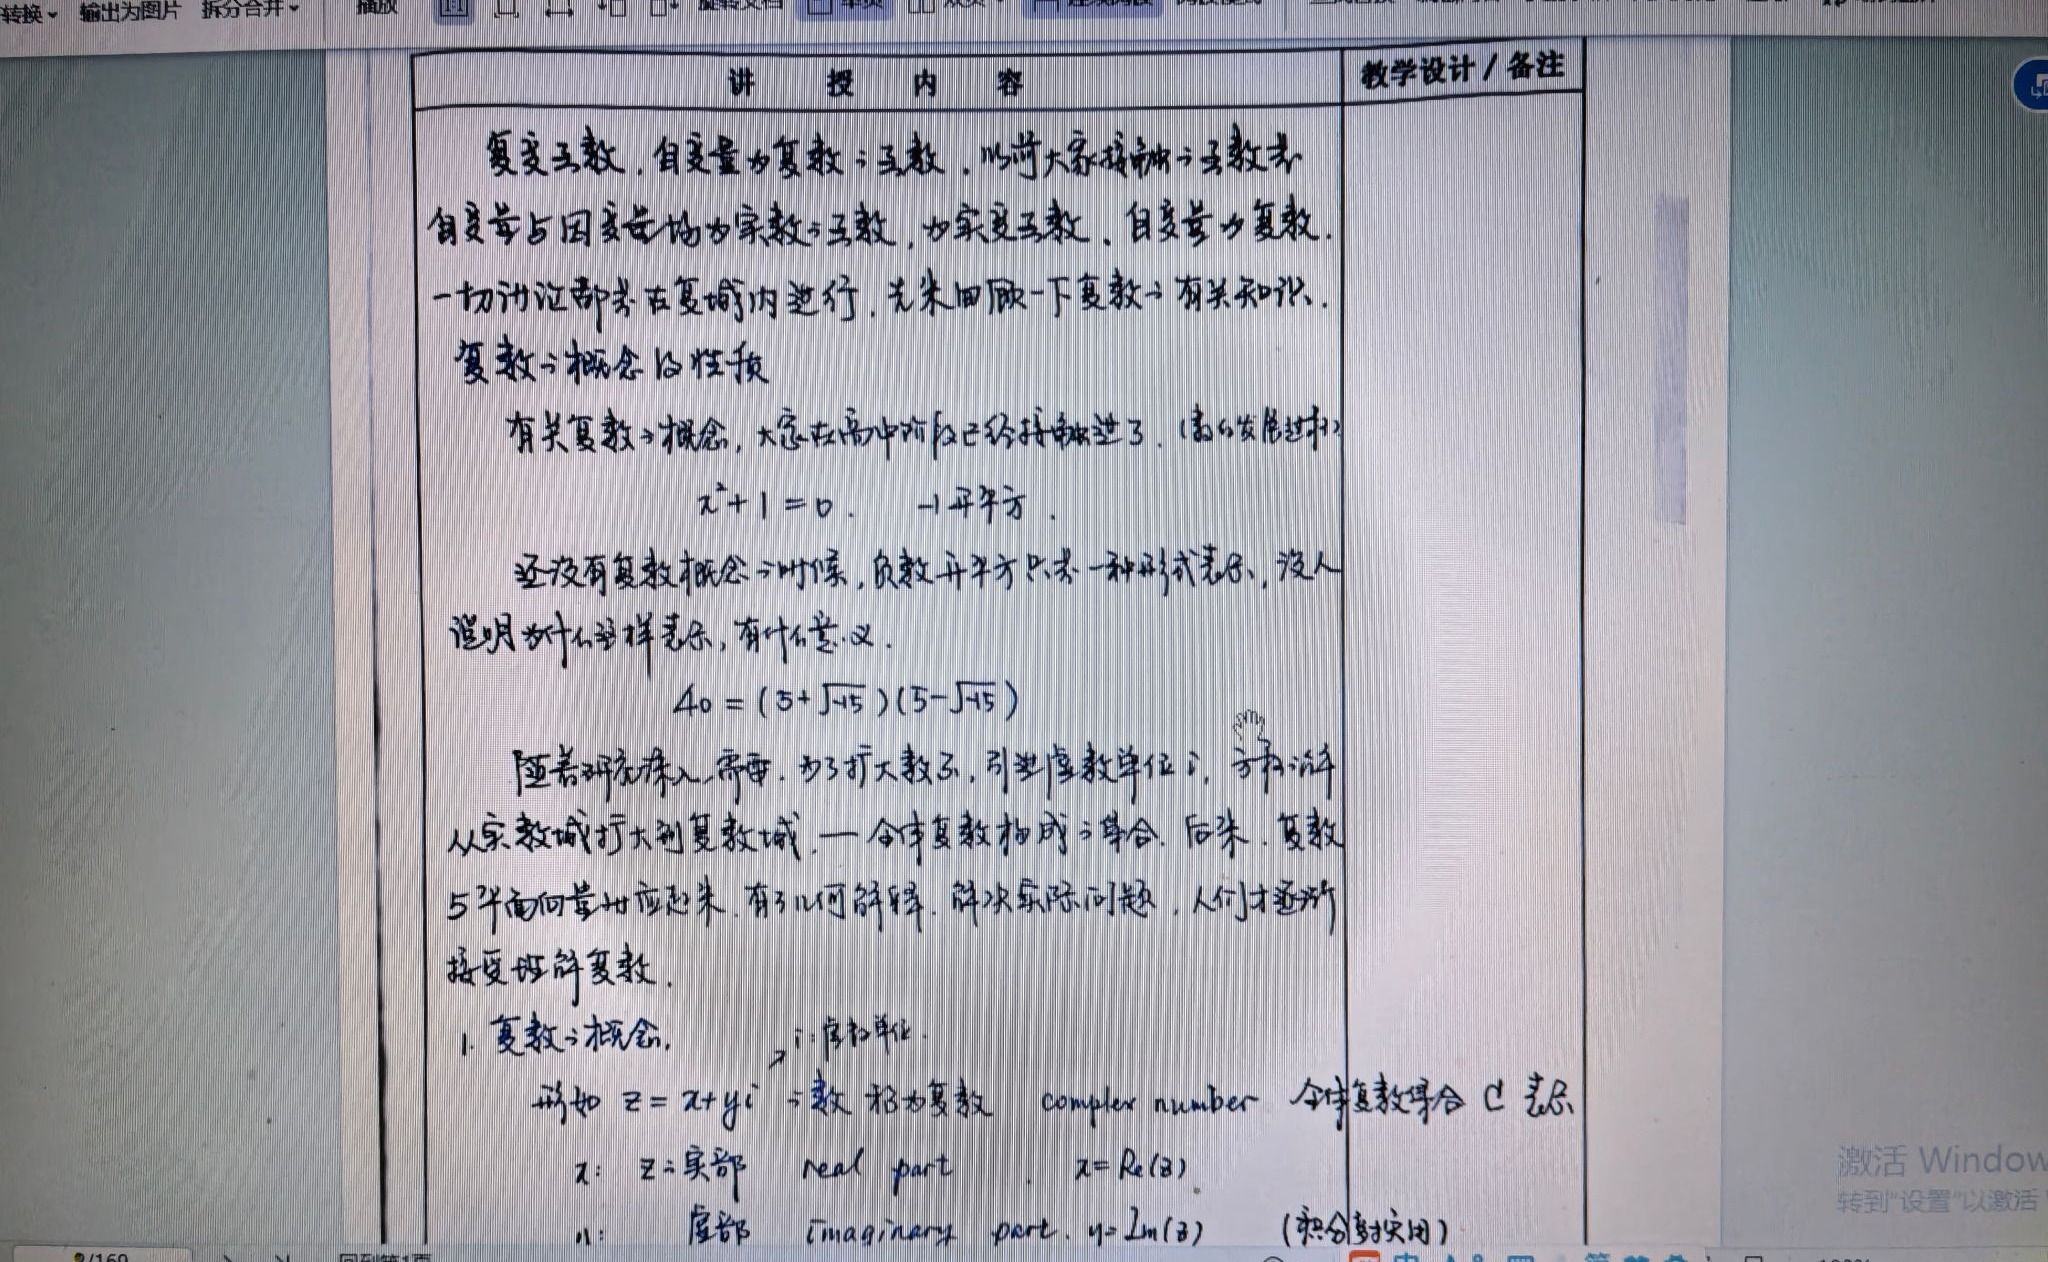 转换 输出为图片 拆分合并 播放
讲 授 内 容 教学设计/备注
复变函数,自变量为复数之函数,以前大家接触之函数是
自变量与因变量均为实数之函数,为实变函数,自变量为复数,
一切讨论都是在复域内进行,先来回顾一下复数之有关知识.
复数之概念及性质
有关复数之概念,大家在高中阶段已经接触过了.
x²+1=0. -1开平方.
还没有复数概念之时候,负数开平方只是一种形式表示,没人
说明为什么这样表示,有什么意义.
40=(5+√-15)(5-√-15)
随着研究深入,需要,为了扩大数系,引进虚数单位i,方程之解
从实数域扩大到复数域,—全体复数构成之集合.后来,复数
与平面向量对应起来,有了几何解释,解决实际问题,人们才逐渐
接受理解复数.
1. 复数之概念.
i:虚数单位.
形如 z=x+yi 之数 称为复数 complex number 全体复数集合 C 表示
x: z之实部 real part x=Re(z)
虚部 imaginary part. y=Im(z)
激活 Window
转到"设置"以激活
/160 回到第1页